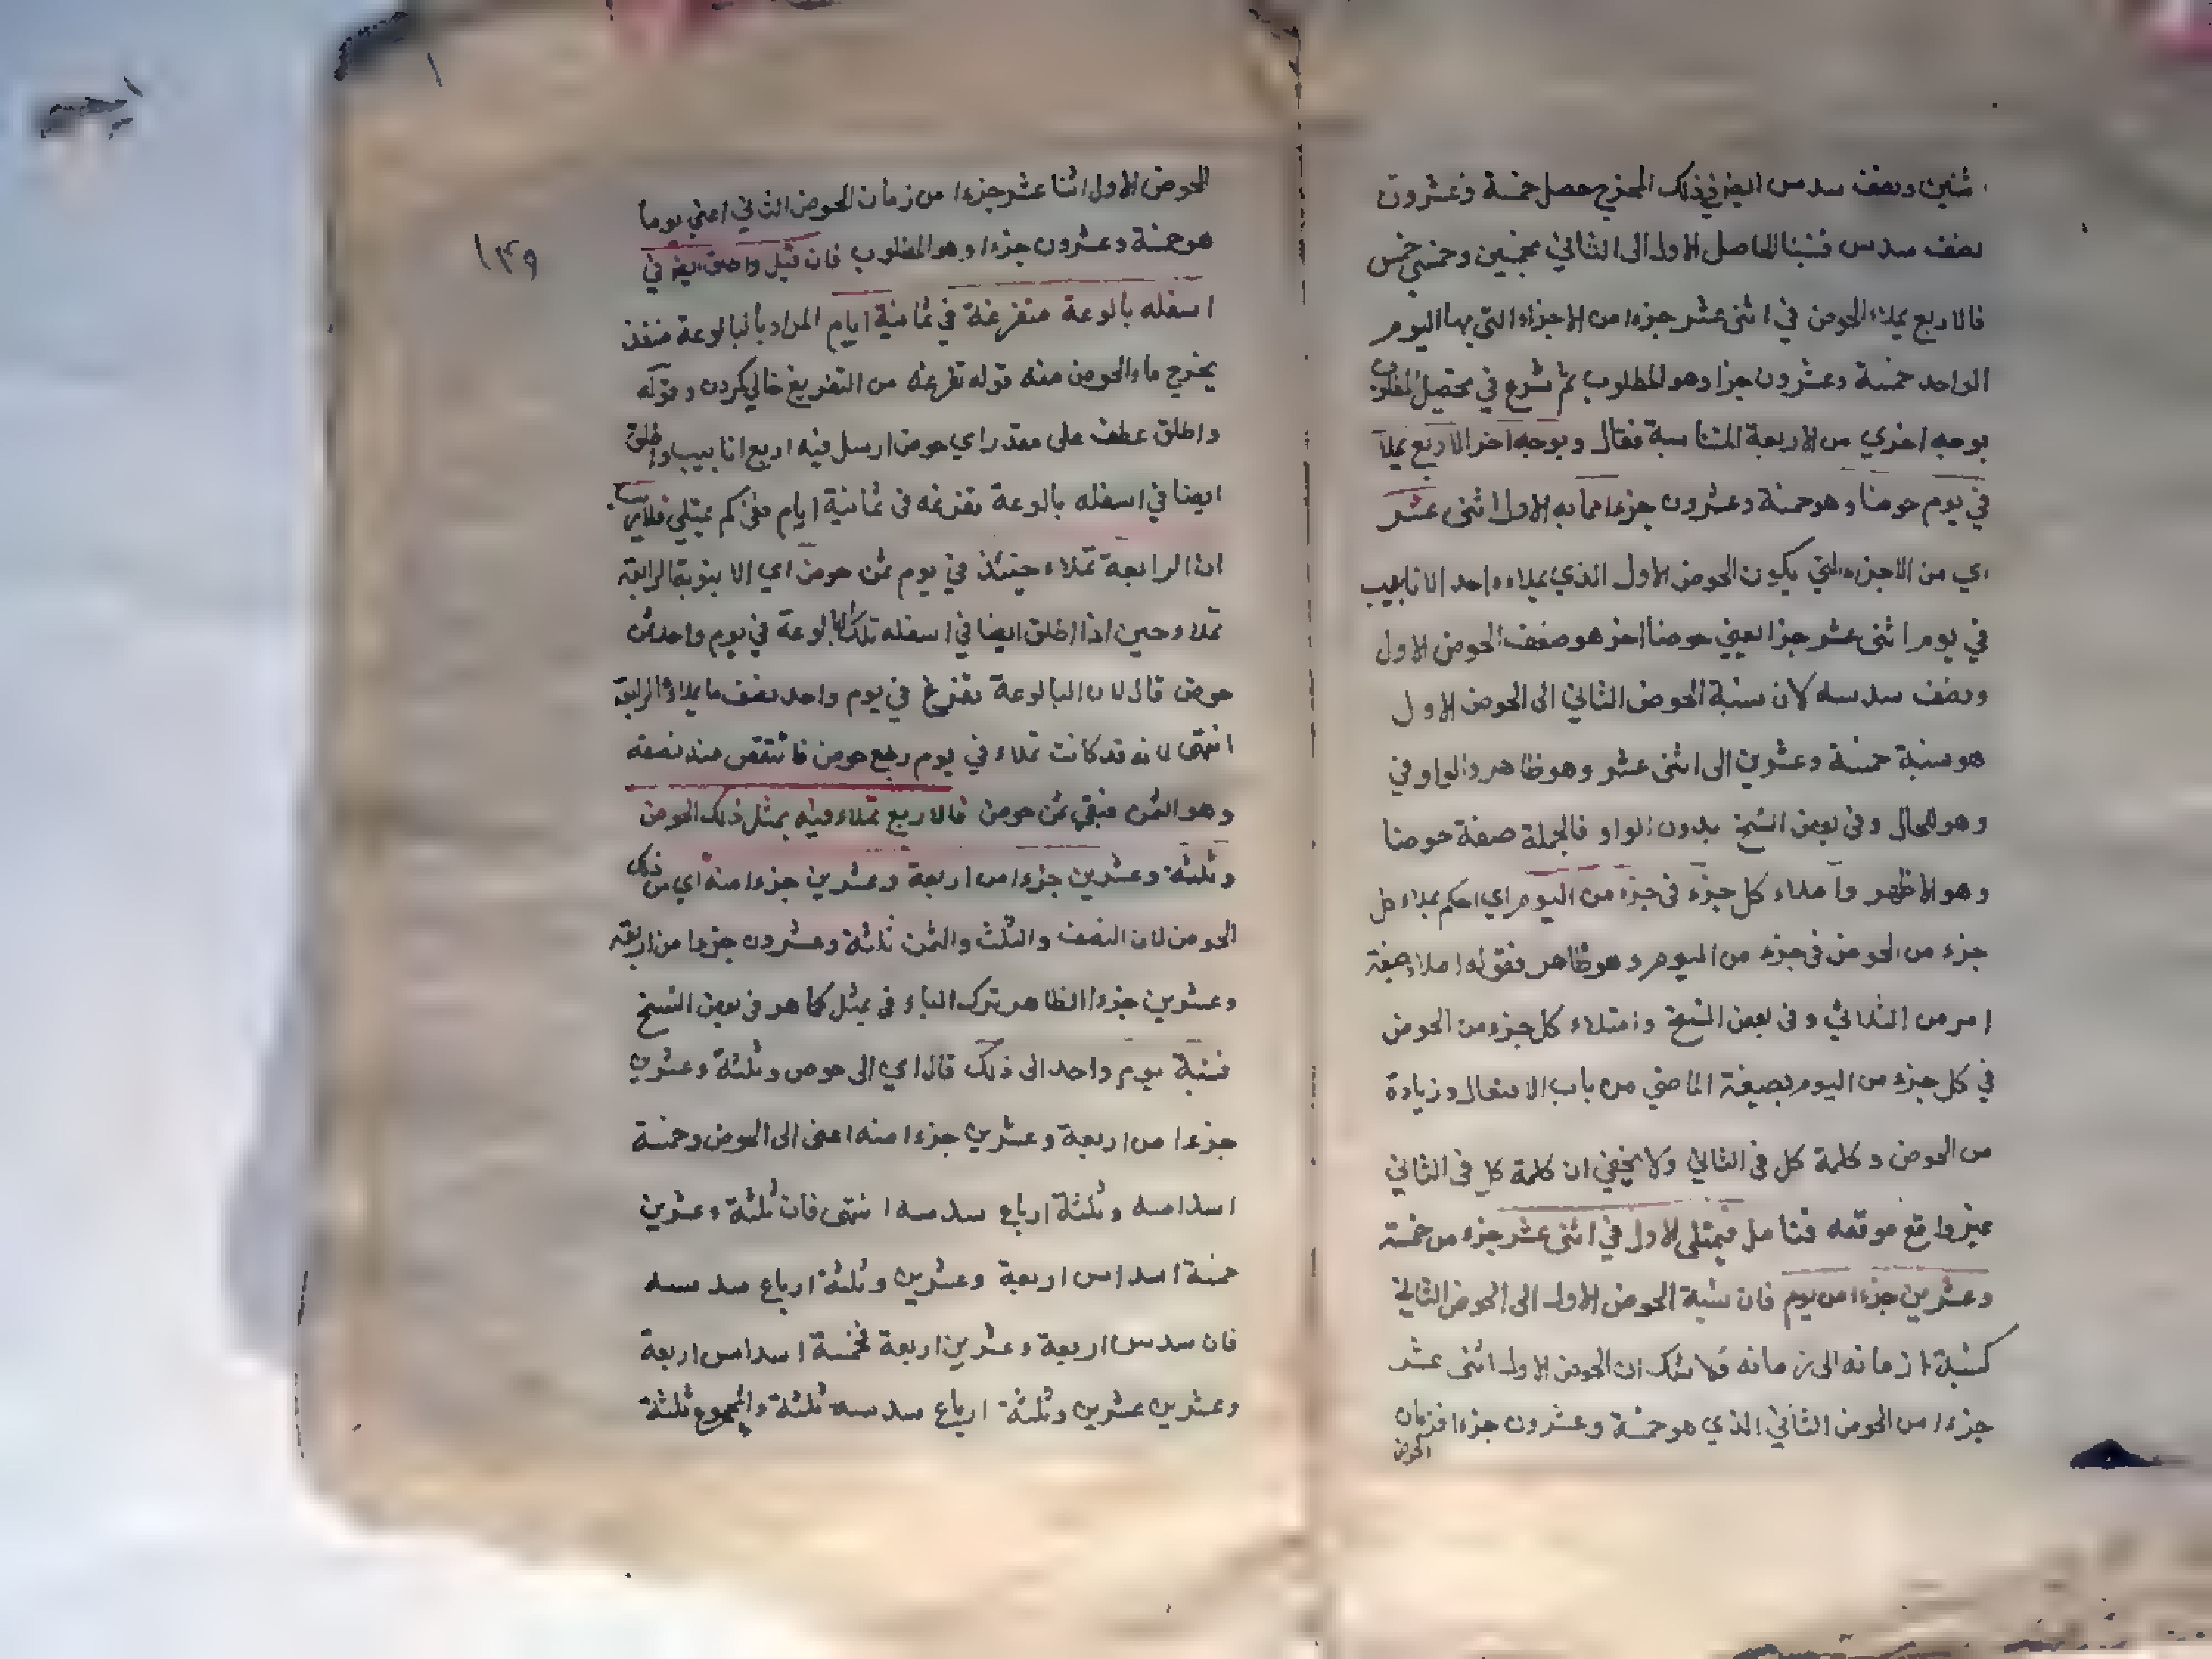 اثنين ونصف سدس ايضا في ذلك المخرج حصل خمسة وعشرون
نصف سدس فنسبنا الحاصل الاول الى الثاني بخمسين وخمسي خمس
فالاربع يملاء الحوض في اثنى عشر جزءا من الاجزاء التي بها اليوم
الواحد خمسة وعشرون جزا وهو المطلوب ثم شرع في تحصيل المطلوب
بوجه اخرى من الاربعة المتناسبة فقال وبوجه آخر الاربع يملأ
في يوم حوضا وهو خمسة وعشرون جزءا مما به الاول اثنى عشر
اي من الاجزاء التي يكون الحوض الاول الذي يملاء واحد الانابيب
في يوم اثنى عشر جزا يعني حوضا اخر هو ضعف الحوض الاول
ونصف سدسه لان نسبة الحوض الثاني الى الحوض الاول
هو نسبة خمسة وعشرين الى اثنى عشر وهو ظاهر والواو في
وهو للحال وفى بعض النسخ بدون الواو فالجملة صفة حوضا
وهو الاظهر واملاء كل جزء فى جزء من اليوم اي احكم بملاء كل
جزء من الحوض فى جزء من اليوم وهو ظاهر فقوله املاء صيغة
امر من الثلاثي وفى بعض النسخ وامتلاء كل جزء من الحوض
في كل جزء من اليوم بصيغة الماضي من باب الافتعال وزيادة
من الحوض وكلمة كل فى الثاني ولا يخفى ان كلمة كل فى الثاني
غير واقع موقعه فتامل فيمتلى الاول في اثنى عشر جزء من خمسة
وعشرين جزءا من يوم فان نسبة الحوض الاول الى الحوض الثاني
كنسبة زمانه الى زمانه فلا شك ان الحوض الاول اثنى عشر
جزءا من الحوض الثاني الذي هو خمسة وعشرون جزءا فزمان
الحوض
١٣٩
الحوض الاول اثنا عشر جزءا من زمان الحوض الثاني اعني يوما
هو خمسة وعشرون جزءا وهو المطلوب فان قيل واطلق ايضا في
اسفله بالوعة متفرغة في ثمانية ايام المراد بالبالوعة منفذ
يخرج ماء الحوض منه قوله تفرغه من التفريغ خالي كردن وقوله
واطلق عطف على مقدر اي حوض ارسل فيه اربع انابيب واطلق
ايضا في اسفله بالوعة تفرغه فى ثمانية ايام ففي كم يمتلي فلا ريب
ان الرابعة تملاء حينئذ في يوم ثمن حوض اي الانبوبة الرابعة
تملاء حين اذا اطلق ايضا في اسفله تلك البالوعة في يوم واحد ثمن
حوض قال لان البالوعة تفرغ في يوم واحد نصف ما يملاء الرابعة
انتهى لانه قد كانت تملاء في يوم ربع حوض فانتقص منه نصفه
وهو الثمن فبقي ثمن حوض فالاربع تملاء فيه بمثل ذلك الحوض
وثلثة وعشرين جزءا من اربعة وعشرين جزءا منه اي من ذلك
الحوض لان النصف والثلث والثمن ثلثة وعشرون جزءا من اربعة
وعشرين جزءا الظاهر ترك الباء فى بمثل كما هو فى بعض النسخ
فنسبة يوم واحد الى ذلك قال اي الى حوض وثلثة وعشرين
جزءا من اربعة وعشرين جزءا منه اعنى الى الحوض وخمسة
اسداسه وثلثة ارباع سدسه انتهى فان ثلثة وعشرين
خمسة اسداس اربعة وعشرين وثلثة ارباع سدسه
فان سدس اربعة وعشرين اربعة فخمسة اسداس اربعة
وعشرين عشرين وثلثة ارباع سدسه ثلثة والمجموع ثلثة